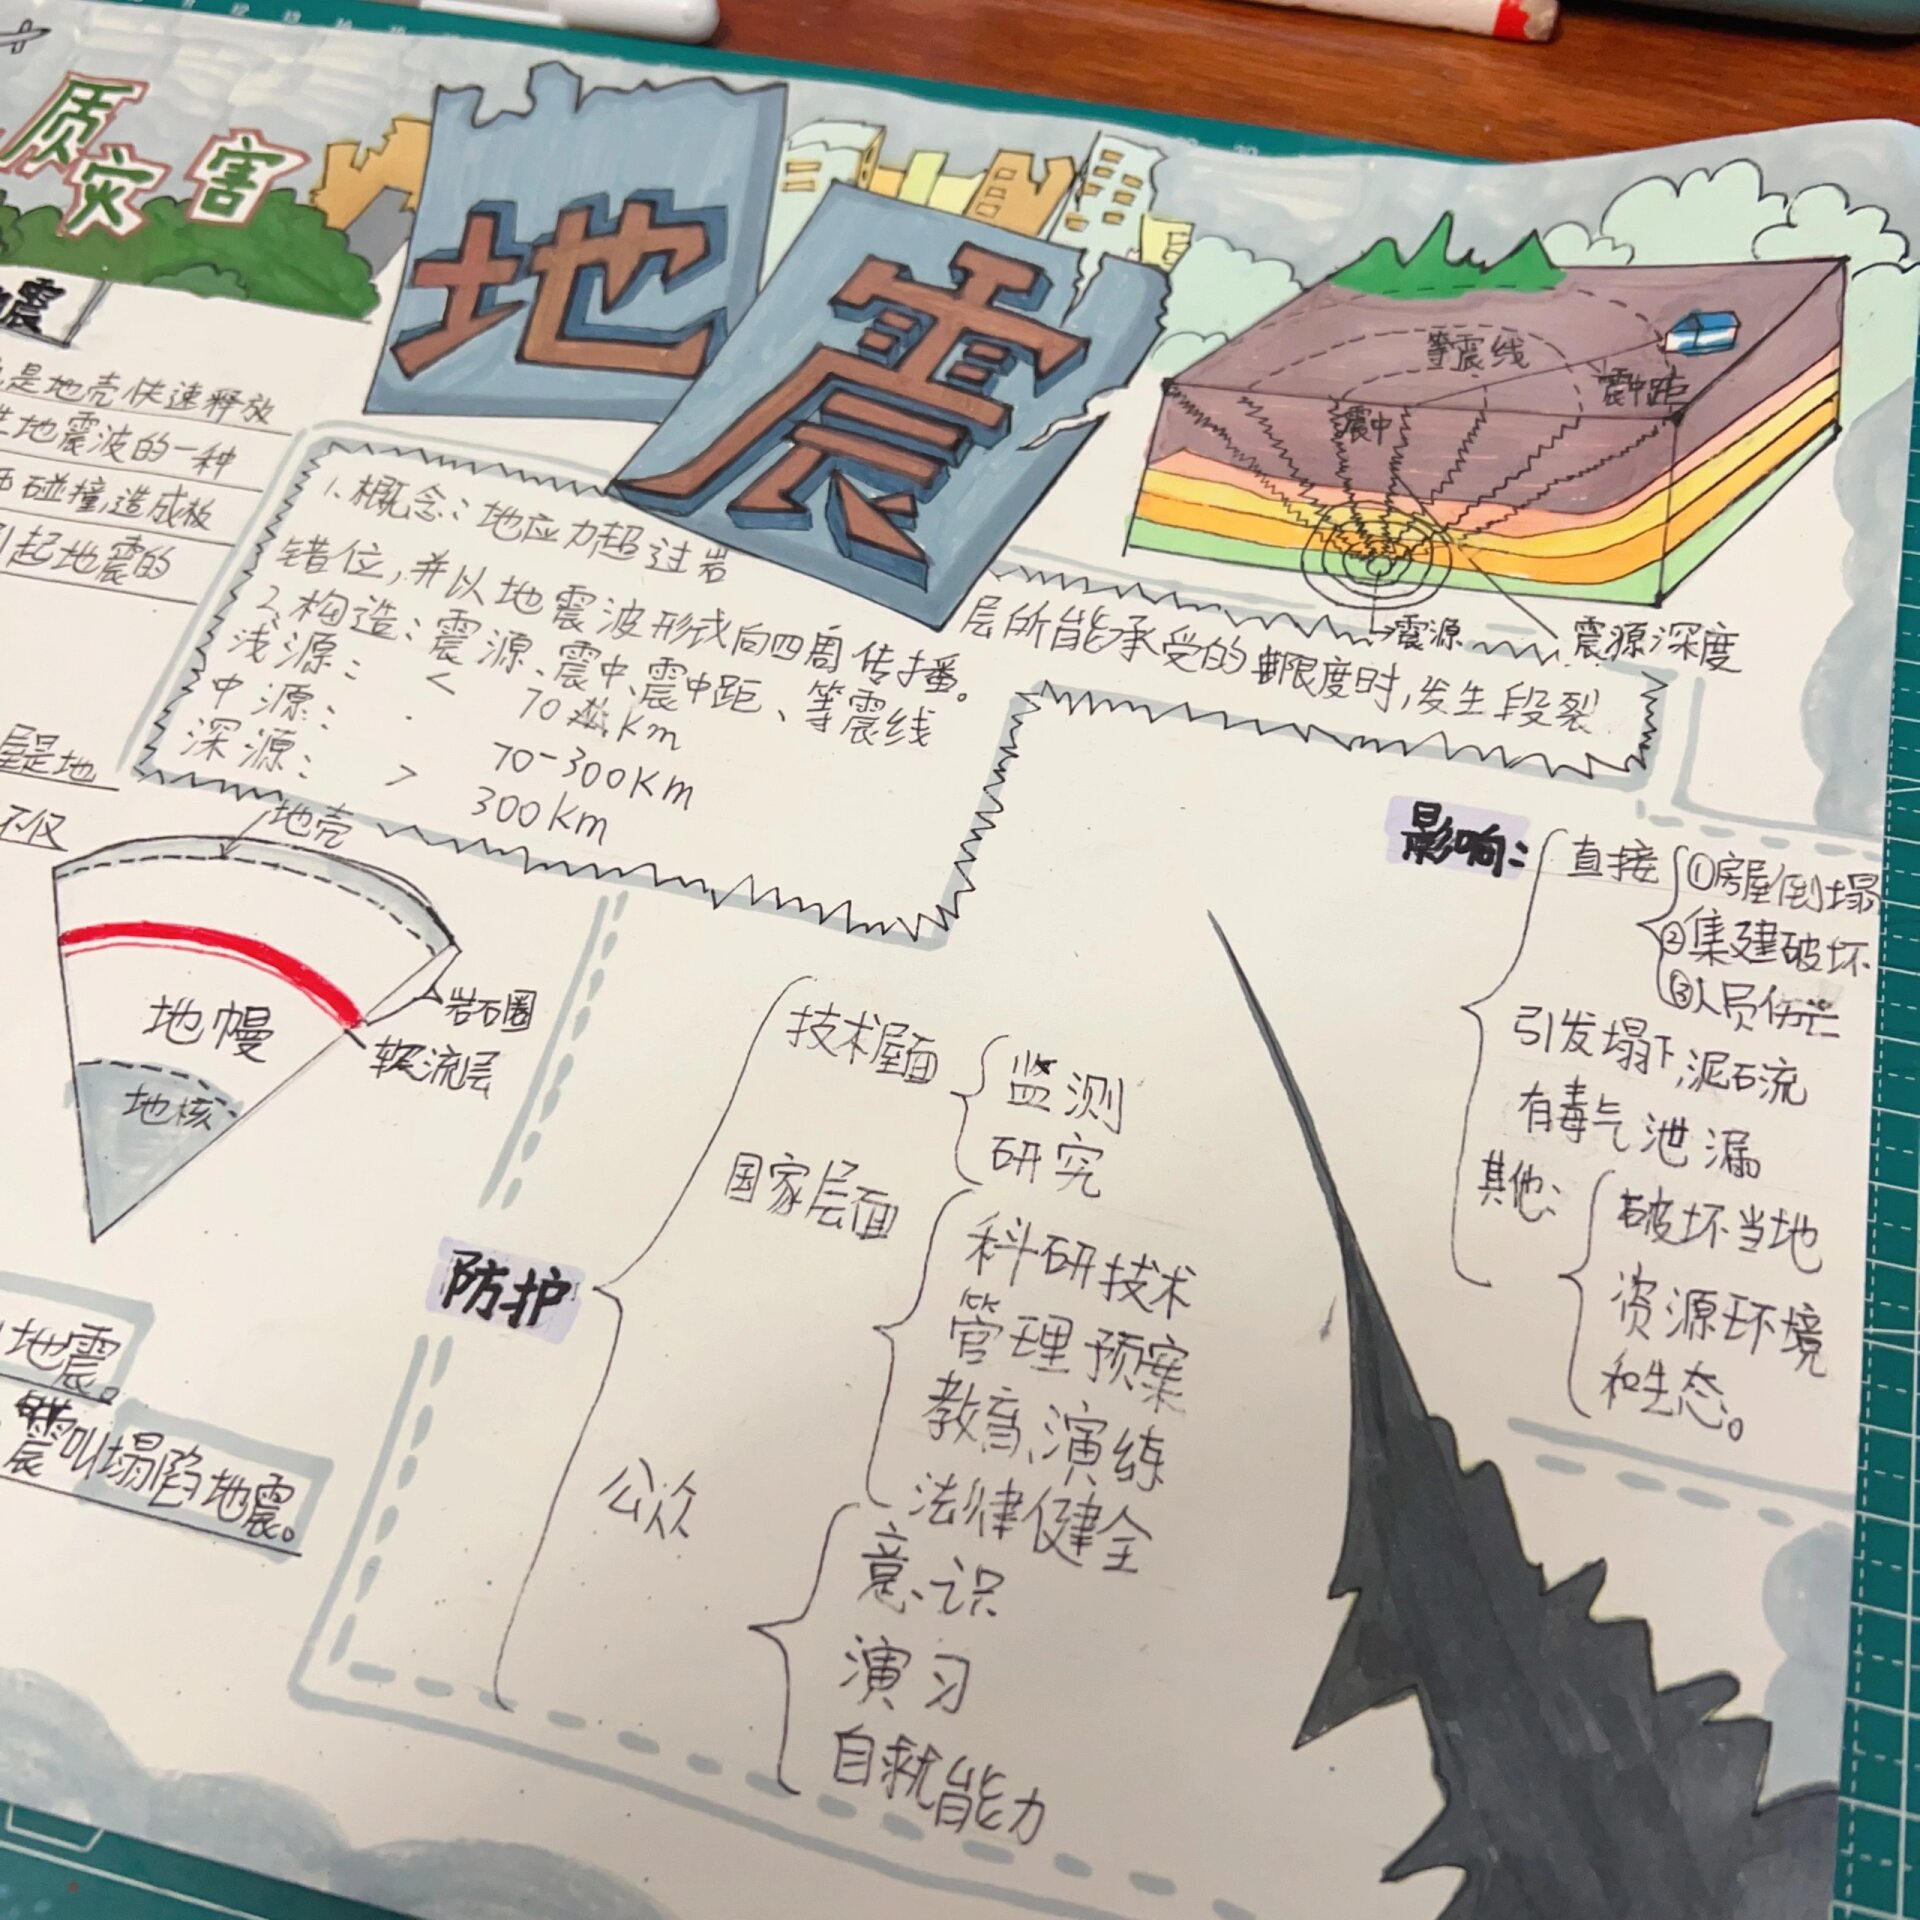 质灾害
地震
震
是地壳快速释放
地震波的一种
碰撞,造成板
引起地震的
1、概念:地应力超过岩
层所能承受的限度时,发生段裂
错位,并以地震波形式向四周传播。
2、构造:震源、震中、震中距、等震线
浅源: < 70km
中源: 70-300km
深源: > 300km
等震线
震中距
震中
震源
震源深度
屋是地
不仅
地壳
岩石圈
软流层
地幔
地核
地震。
震叫塌陷地震。
防护
技术层面
监测
研究
国家层面
科研技术
管理预案
教育、演练
法律健全
公众
意识
演习
自救能力
影响:
直接
①房屋倒塌
②集建破坏
③人员伤亡
引发塌下,泥石流
有毒气泄漏
其他:
破坏当地
资源环境
和生态。